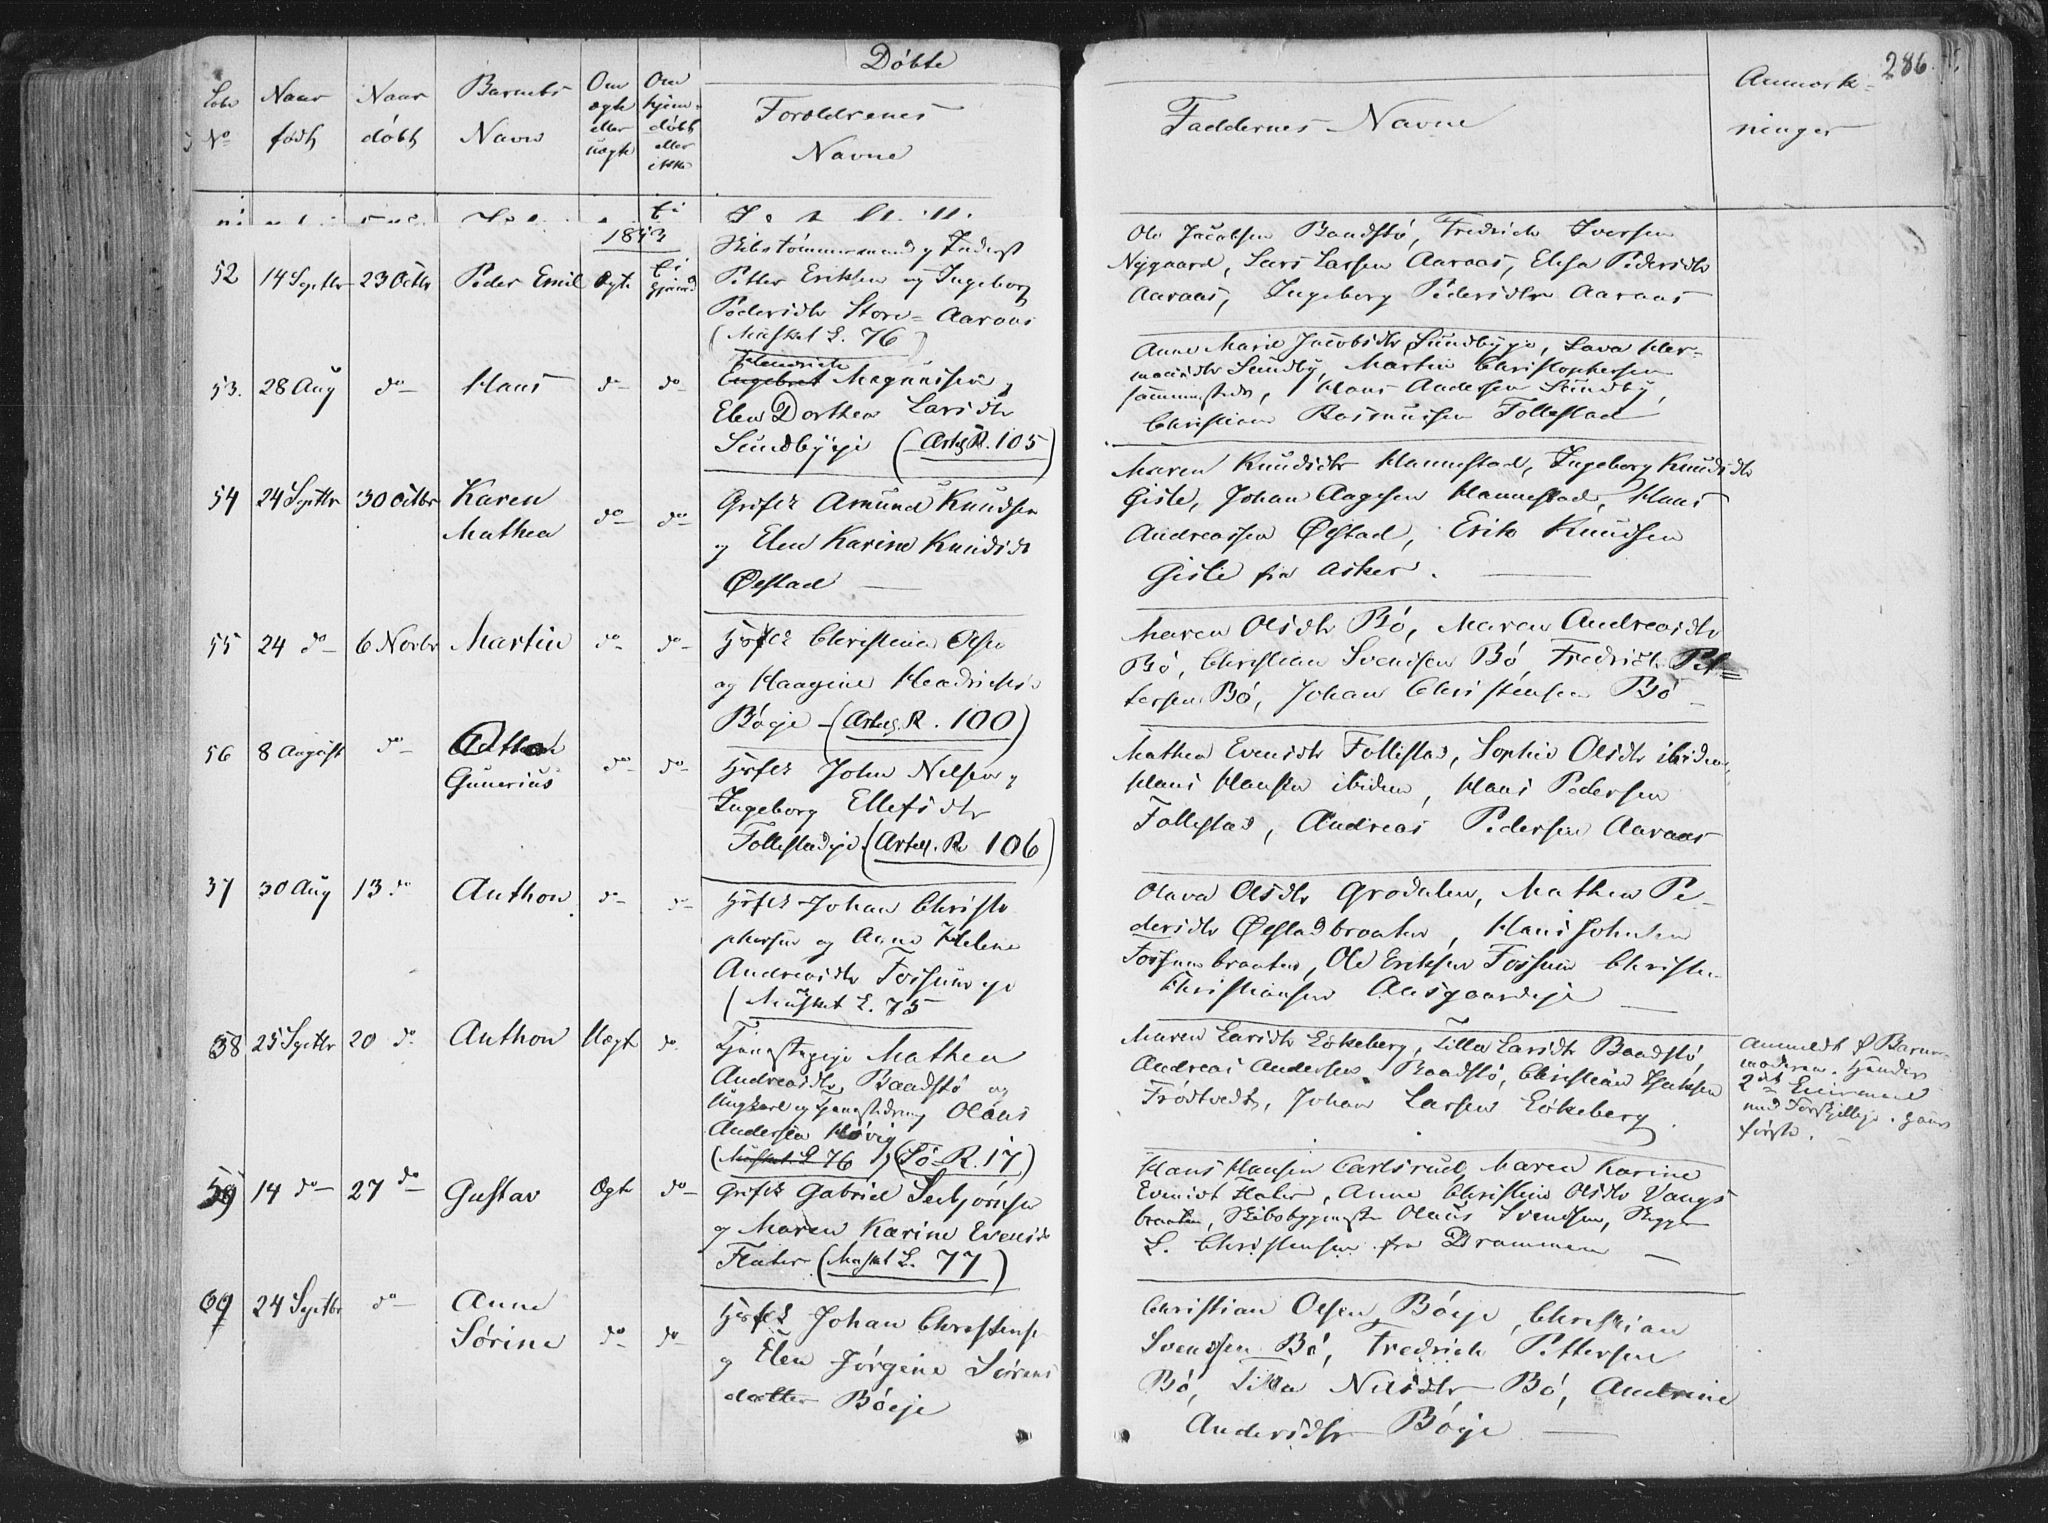 Døbte
286.
Lobe No
Naar født
Naar døbt
Barnets Navn
Om ægte eller uægte
Om hjem= døbt eller ikke
Forældrenes Navne
Faddernes Navne
Anmærk= ninger
1853
52 14 Septbr 23 Octbr Peder Emil Ægte
Petter Eriksen og Ingeborg
Pedersdtr Store=Aaraas
(Musket L. 76)
Ole Jacobsen Baadstø, Fredrich Iversen
Nygaard, Lars Larsen Aaraas, Elisa Pedersdtr
Aaraas, Ingeborg Pedersdtr Aaraas
53. 28 Aug do Hans do do
Hendrich
Engebret Magnusen og
Elen Dorthea Larsdtr
Sundbyeje (Arteg R. 105)
Anne Marie Jacobsdtr Sundbyeje, Lava Her=
mansdtr Sundby, Martin Christophersen
sammesteds, Hans Andersen Sundby,
Christian Rasmussen Follestad
54 24 Septbr 30 Octbr Karen Mathea do do
Grbfk Amund Knudsen
og Elen Karine Knudsdtr
Øfstad
Maren Knudsdtr Hannestad, Ingeborg Knudsdtr
Gisle, Johan Aagesen Hannestad, Hans
Andreassen Øfstad, Erik Knudsen
Gisle fra Asker.
55 24 do 6 Novbr Martin do do
Christian Olsen
og Haagine Hendrichs
Bøeje (Arteg. R. 100)
Maren Olsdtr Bø, Maren Andreasdtr
Bø, Christian Svendsen Bø, Fredrich Pet=
tersen Bø, Johan Christensen Bø
56 8 August do Anthon Gunerius do do
John Nilsen og
Ingeborg Ellefsdtr
Follestadeje (Artell. R. 106)
Mathea Evensdtr Follestad, Sophie Olsdtr ibidem,
Hans Hansen ibidem, Hans Pedersen
Follestad, Andreas Pedersen Aaraas
37 30 Aug 13 do Anthon do do
Johan Christo
phersen og Anne Helene
Andreasdtr Fossumeje
(Musket L. 75
Olava Olsdtr Grodalen, Mathea Pe-
dersdtr Øfstadbraaten, Hans Johnsen
Fossumbraaten, Ole Eriksen Fossum Christen
Christiansen Ausgaardeje
58 25 Septbr 20 do Anthon Uægte do
Tjenestepige Mathea
Andreasdtr Baadstø og
Ungkarl og Tjenestedreng Olaus
Andersen Høvig
(Musket L 76) (Sø-R. 17)
Maren Larsdtr Eøkeberg, Tilla Larsdtr Baadstø,
Andreas Andersen Baadstø, Christian
Frødtvedt, Johan Larsen Eøkeberg
Anmeldt f Barne
moderen. Hendes
2det Leiermaal
med Forskjellige. Hans
første.
59 14 do 27 do Gustav Ægte do
Grbfk Gabriel Seebjørnsen
og Maren Karine Evensdtr
Flater (Musket L. 77)
Hans Hansen Carlsrud, Maren Karine
Evensdt Flater, Anne Christine Olsdtr Vangs
braaten, Skibsbygmester Olaus Svendsen, Skipper
L. Christensen fra Drammen
60 24 Septbr do Anne Sørine do do
Johan Christensen
og Elen Jørgine Sørens
datter Bøeje
Christian Olsen Bøeje, Christian
Svendsen Bø, Fredrich Pettersen
Bø, Tilla Nilsdtr Bø, Andrine
Andersdtr Bøeje